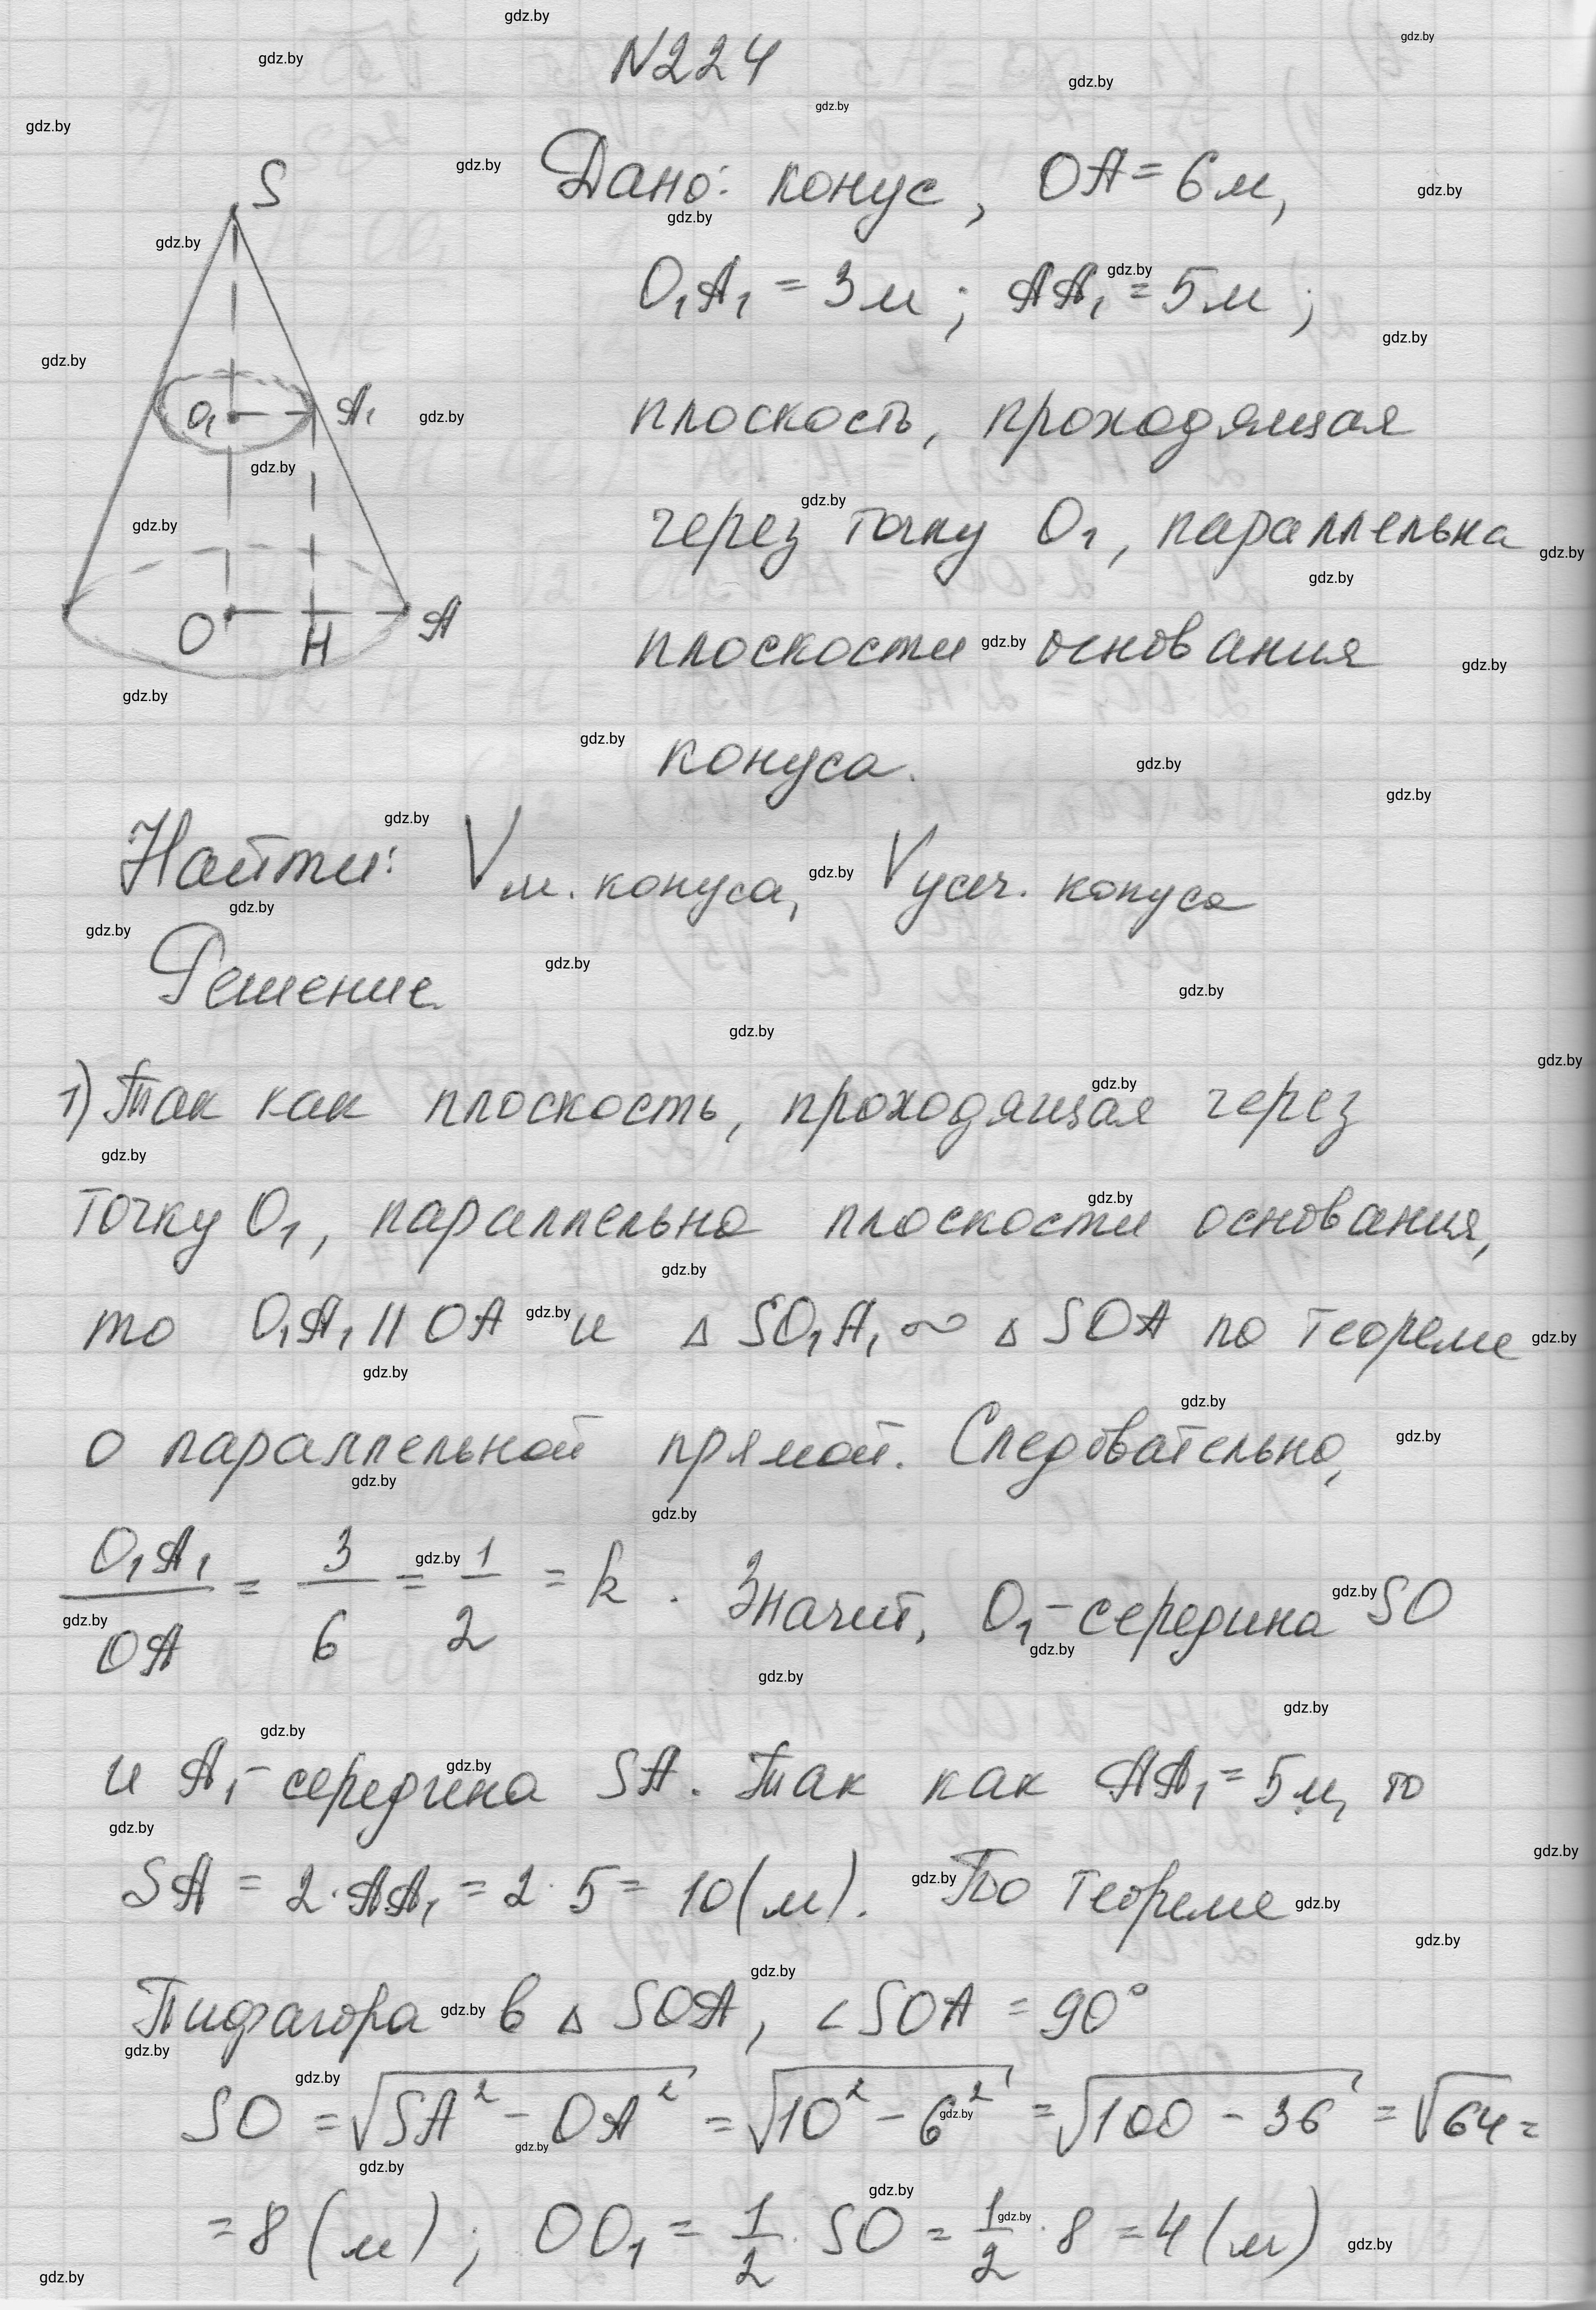 N224
S
Дано: конус, OA = 6 м,
O₁A₁ = 3 м; AA₁ = 5 м;
O₁ A₁
плоскость, проходящая
через точку O₁, параллельна
O H A
плоскости основания
конуса.
Найти: V м. конуса, V усеч. конуса
Решение
1) Так как плоскость, проходящая через
точку O₁, параллельна плоскости основания,
то O₁A₁ || OA и △ SO₁A₁ ∾ △ SOA по теореме
о параллельной прямой. Следовательно,
O₁A₁/OA = 3/6 = 1/2 = k. Значит, O₁ - середина SO
и A₁ - середина SA. Так как AA₁ = 5 м, то
SA = 2·AA₁ = 2·5 = 10 (м). По теореме
Пифагора в △ SOA, ∠SOA = 90°
SO = √(SA² - OA²) = √(10² - 6²) = √(100 - 36) = √64 =
= 8 (м); OO₁ = 1/2 · SO = 1/2 · 8 = 4 (м)
gdz.by